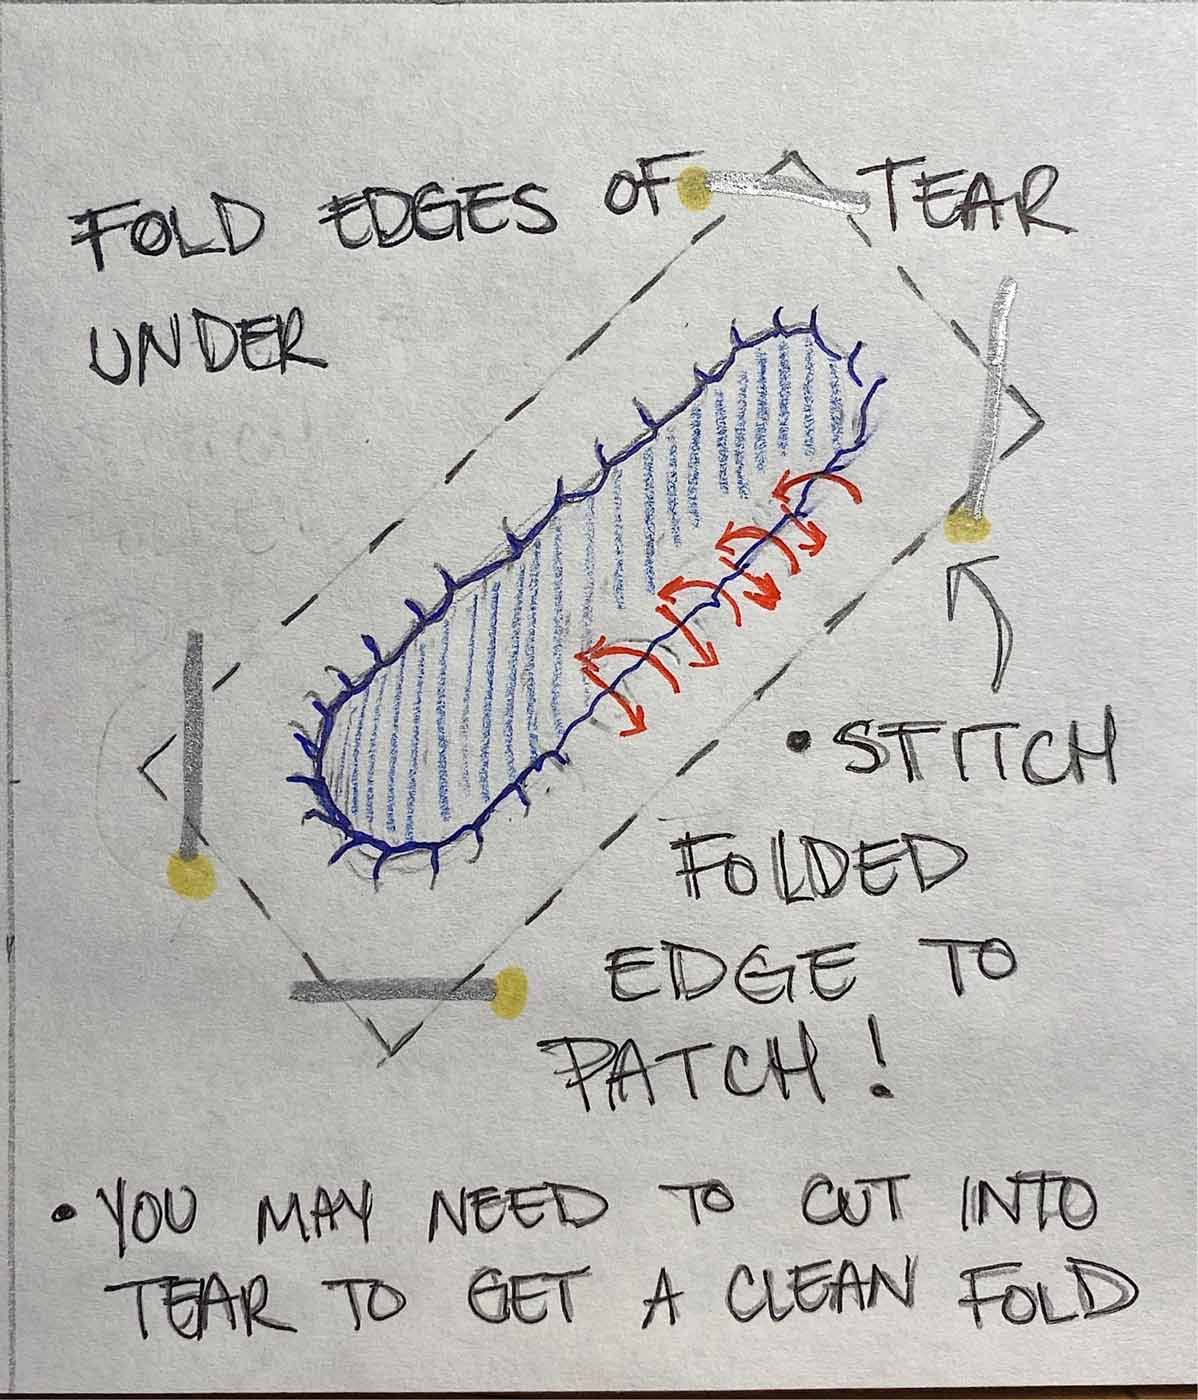 FOLD EDGES OF TEAR
UNDER
• STITCH
FOLDED
EDGE TO
PATCH!
• YOU MAY NEED TO CUT INTO
TEAR TO GET A CLEAN FOLD